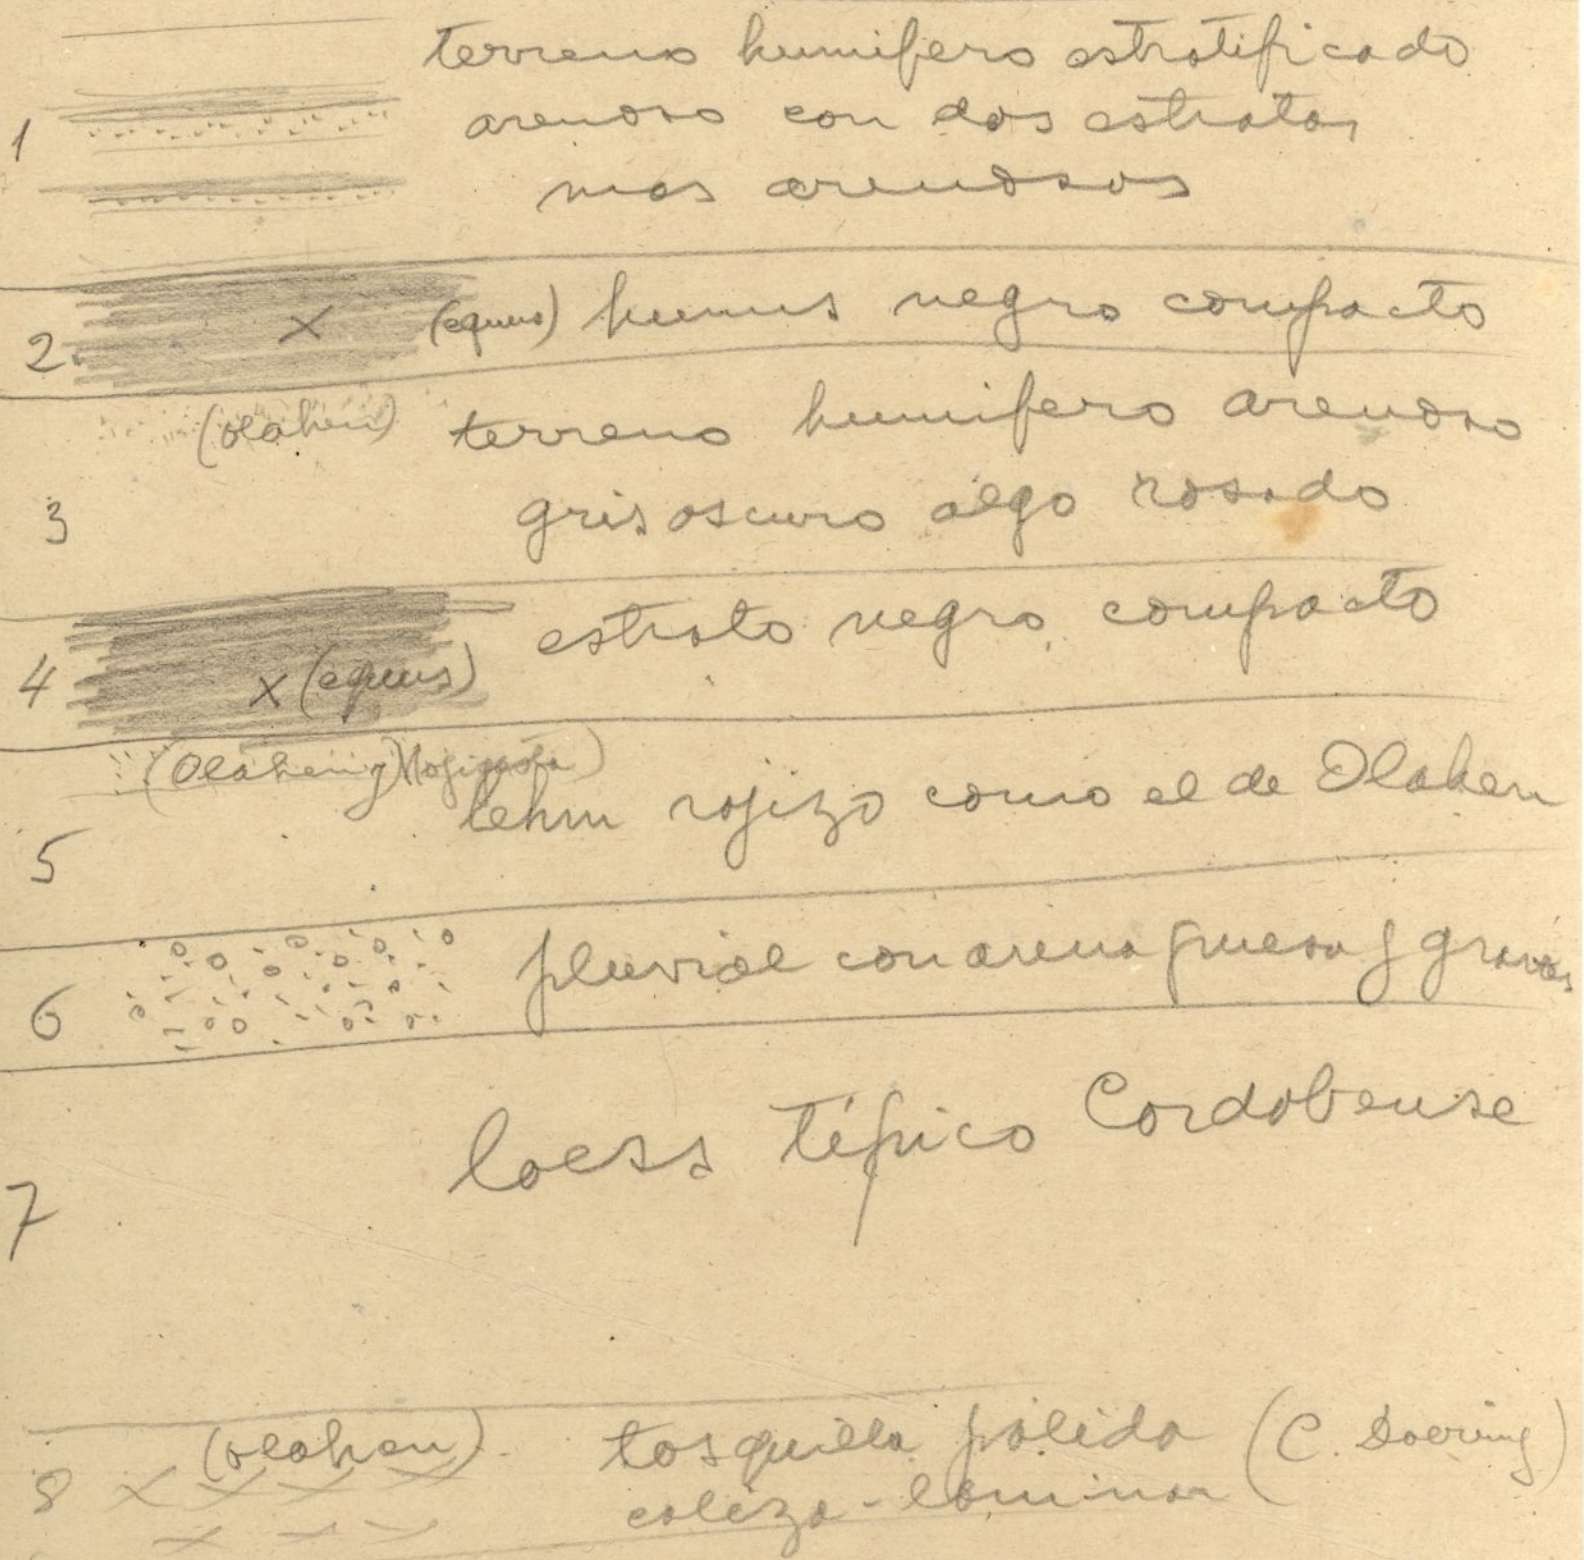 terreno humifero estratificado
1 arenoso con dos estratos
mas arenosos
2. x (equus) humus negro compacto
(olahen) terreno humifero arenoso
3 gris oscuro algo rosado
estrato negro compacto
4 x (equus)
(Olahen y
5 lehm rojizo como el de Olahen
6 pluvial con arena gruesa y gravas
7 loess típico Cordobense
8 (olahen) tosquilla palida (C. Doering)
caliza-laminar